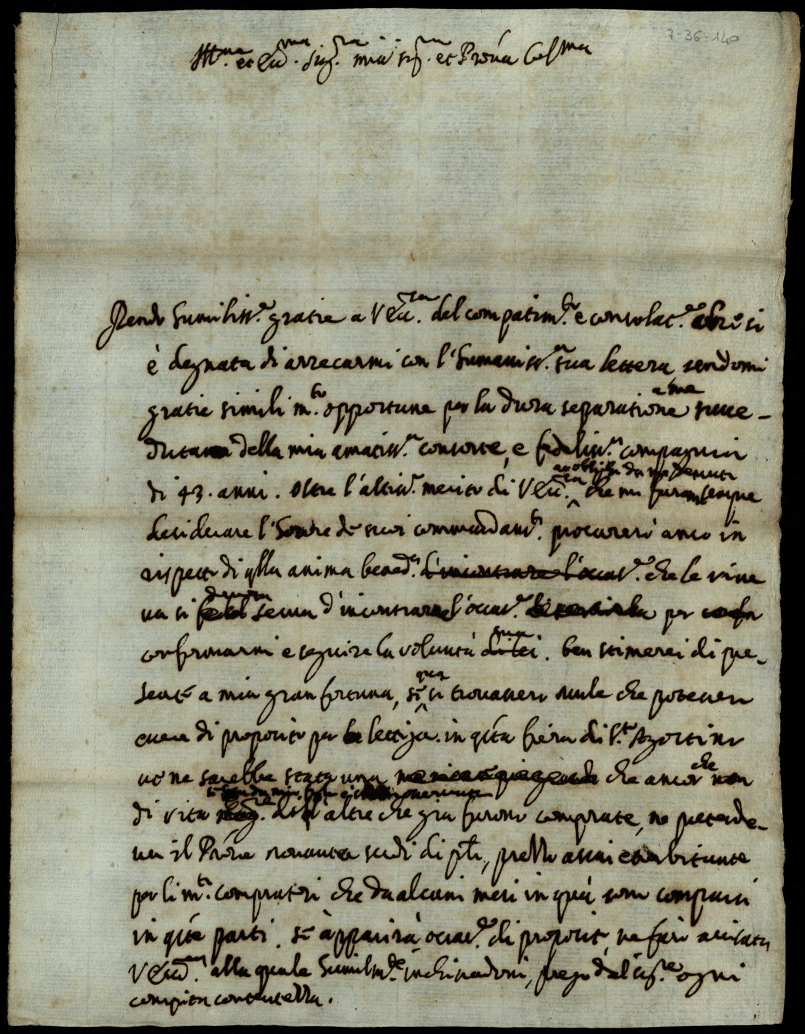 7-36-140
Ill.ma et Ecc.ma Sig.ra mia sig.ra et Pro'na Col.ma
Rendo humiliss.e gratie a V Ecc.za del compatim.to e consolac.e che si
è degnata di arrecarmi con l'humaniss.a sua lettera, sendomi
gratie simili m.to opportune per la dura separatione a me succe-
duta della mia amatiss.a consorte, e fedeliss.a compagnia
di 43. anni. Oltre l'altiss.o merito di V Ecc.za che mi
desiderare l'honore de suoi commandam.ti procurerò anco in
rispetto di q'lla anima bened.a l'incontrare l'occas.e che le vive
va si serva d'incontrare l'occas.e per
conformarmi e seguire la volontà di lei. ben stimerei di pre-
sente a mia gran fortuna, se qua si trovassero mule che potessero
essere di proposito per la lettiga. in q'sta fiera di S.to Agostino
ve ne sarebbe stata una che ancor che non
di vita dell'altre che già furono comprate, ne pretende-
va il Pro'ne novanta scudi di p'li, prezzo assai esorbitante
per li m.ti compratori che da alcuni mesi in quà sono comparsi
in q'ste parti. Se apparirà occas.e di proposito, ne farò avisata
V Ecc.za alla quale humilm.te inchinandomi, prego dal Cis.e ogni
compita contentezza.